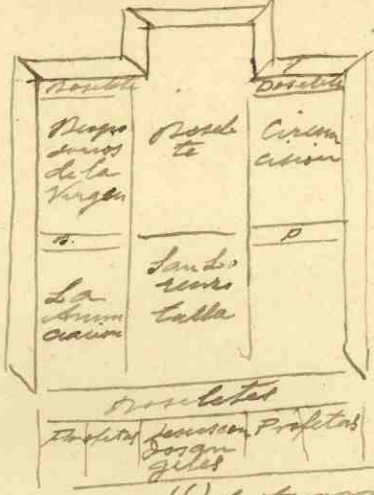 Doselete
Doselete
Despo
sorios
de la
Virgen
Dosele
te
Circun
cision
D.
D
La
Anun
ciacion
San Lo
renzo
talla
Doseletes
Profetas
Jesus con
dos an
geles
Profetas